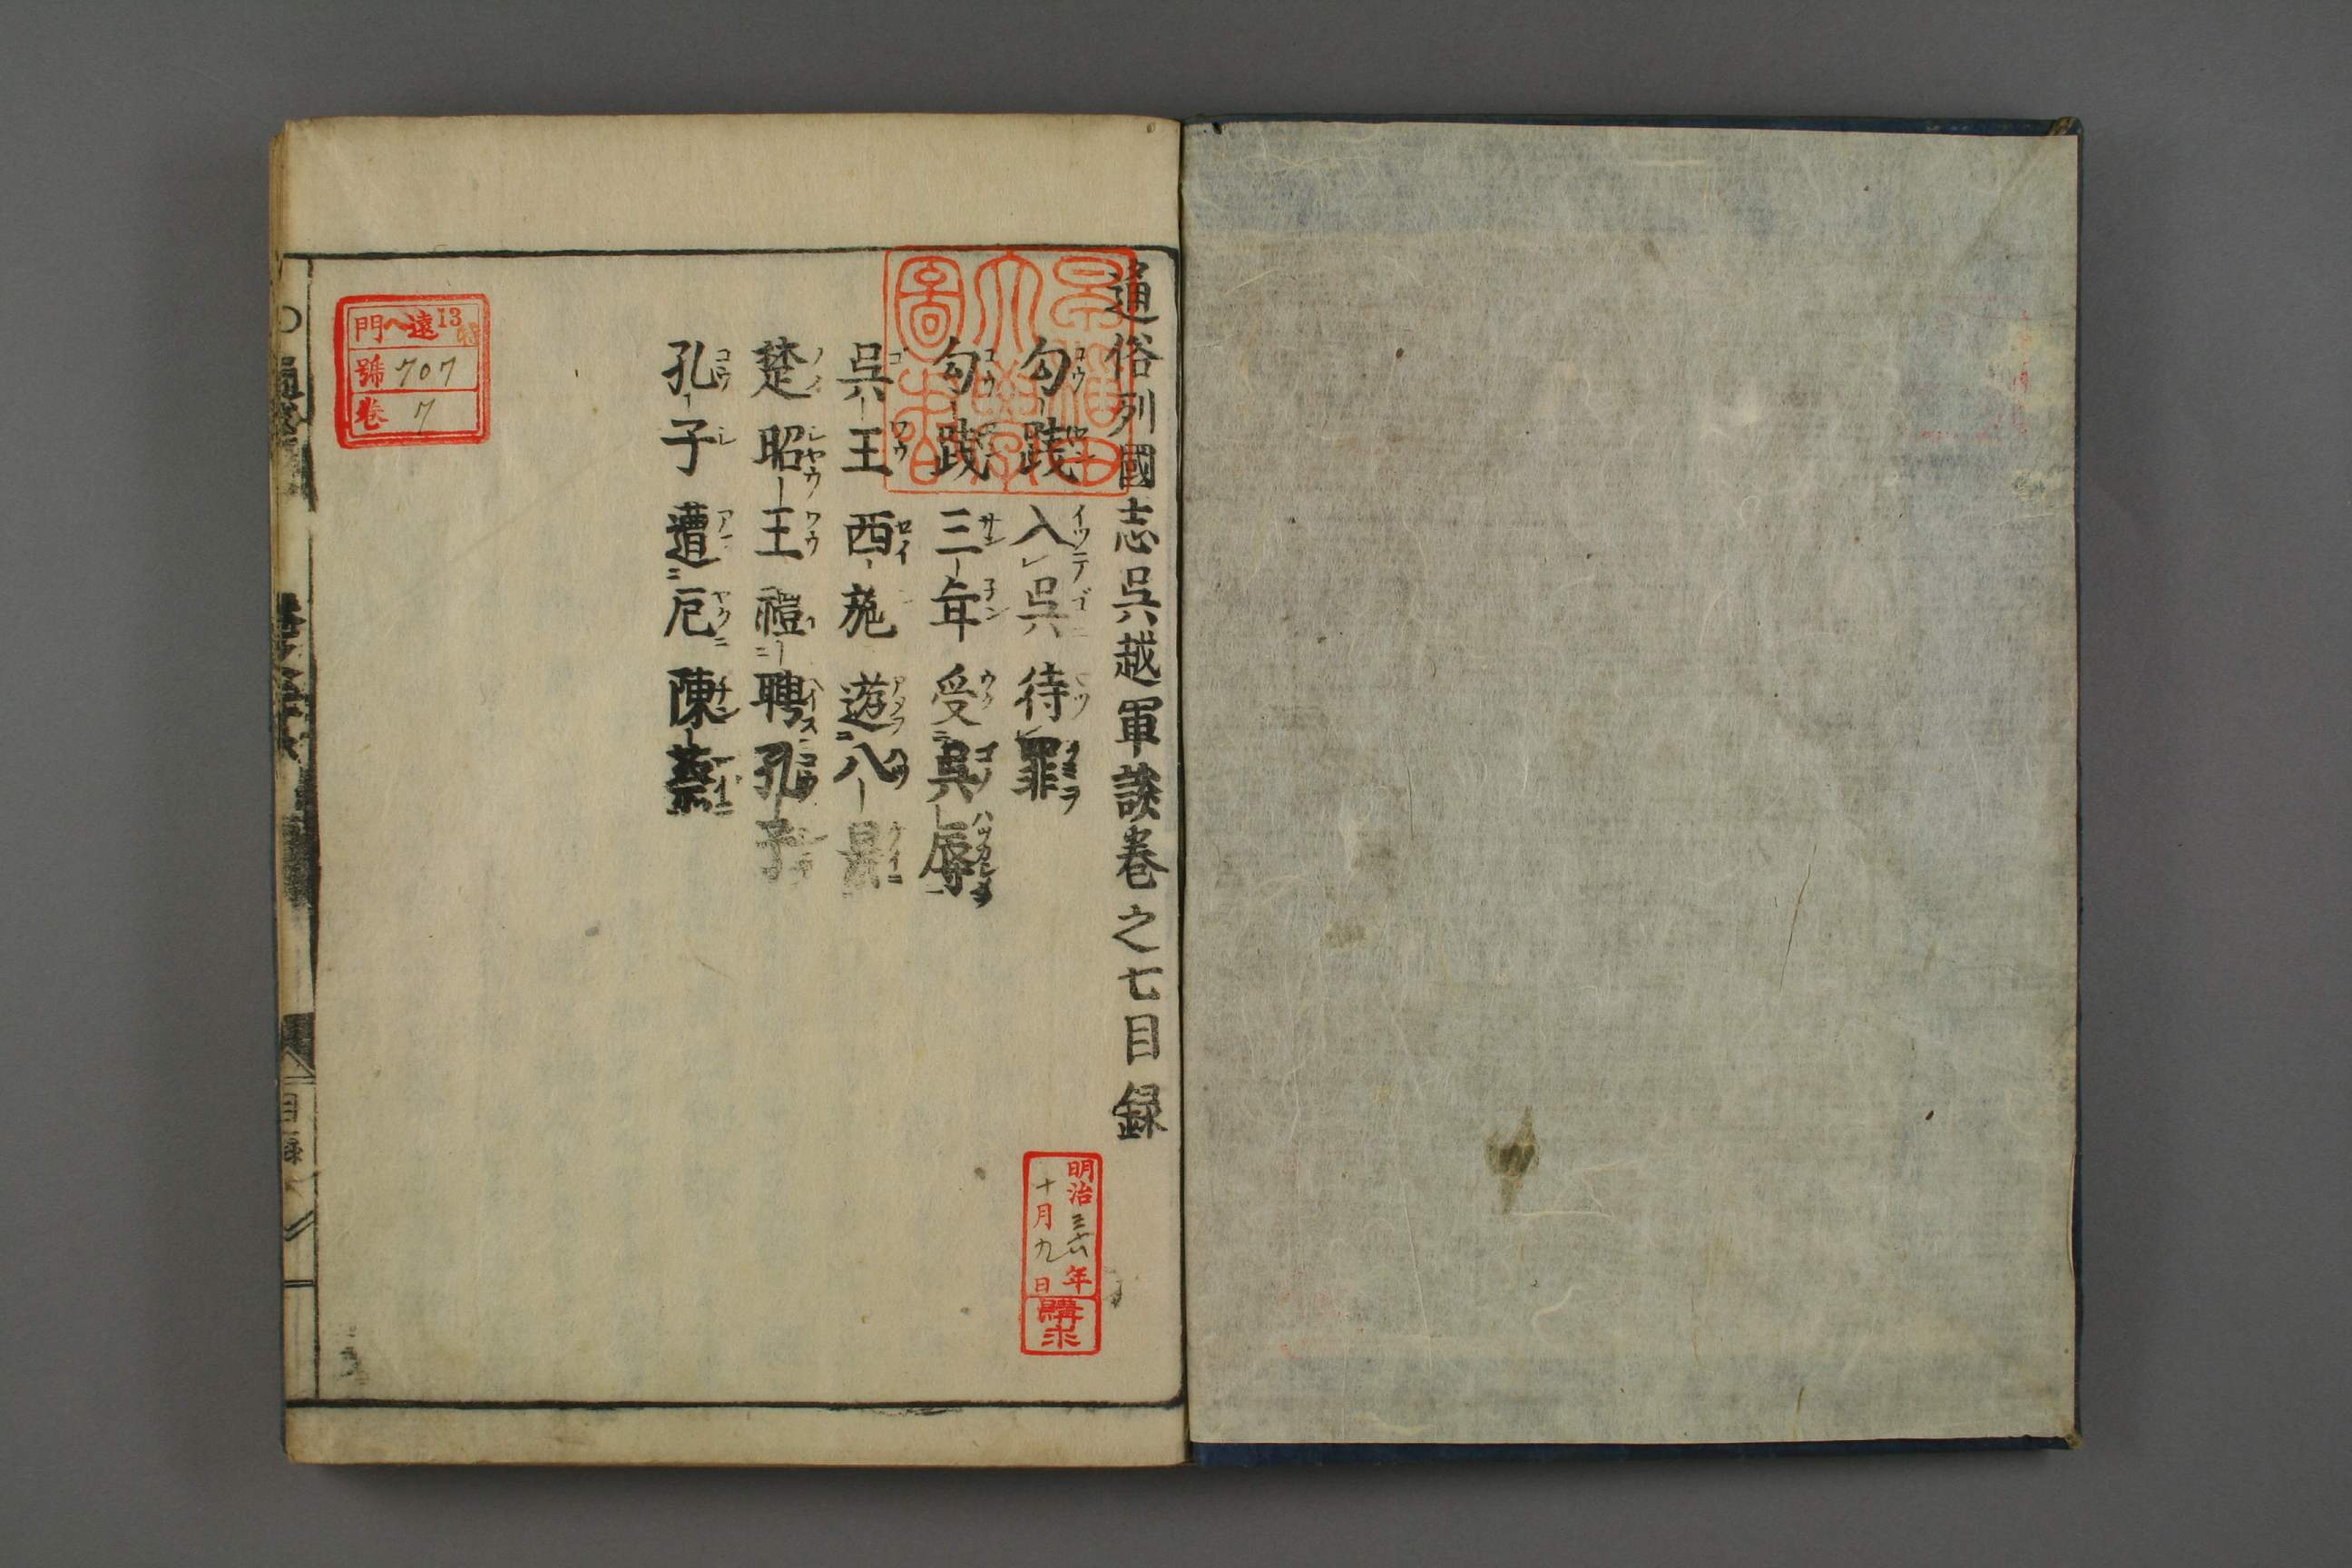 通俗列國志呉越軍談卷之七目録
勾踐入呉待罪
勾踐三年受呉辱
呉王西施遊八景
楚昭王禮聘孔子
孔子遭厄陳蔡
早稲田大學圖書
門ヘ遠13
號707
卷7
明治三十六年
十月九日
購求